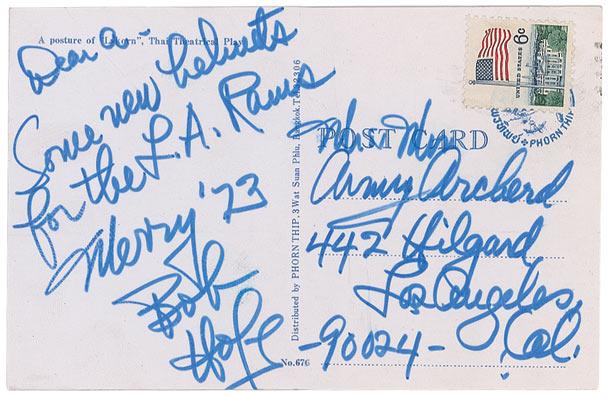 A posture of "Lakorn", Thai Theatrical Play
Dear A-
Some new helmets
for the L.A. Rams
Merry '73
Bob
Hope
Distributed by PHORNTHIP, 3 Wat Suan Phlu, Bangkok. Tel. 32306
No.676
POST CARD
UNITED STATES 6c
PHORNTHIP
Mr. Mrs
Army Archerd
442 Hilgard
Los Angeles,
-90024- Cal.